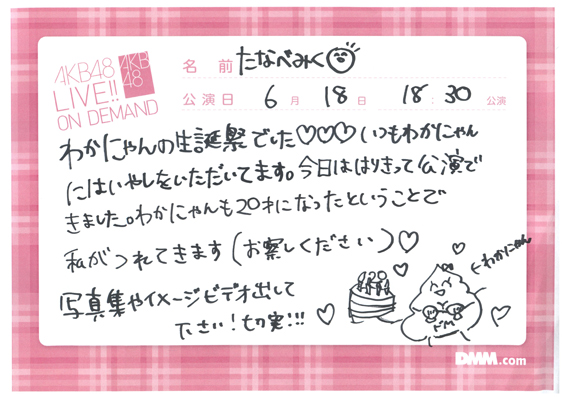 AKB48
LIVE!!
ON DEMAND
AKB
48
名前 たなべみく
公演日 6月 18日 18:30 公演
わかにゃんの生誕祭でした♡♡♡いつもわかにゃん
にはいやしをいただいてます。今日ははりきって公演で
きました。わかにゃんも20才になったということで
私がつれてきます(お楽しください)♡
写真集やイメージビデオ出して
下さい!切実!!!
←わかにゃん
DMM.com